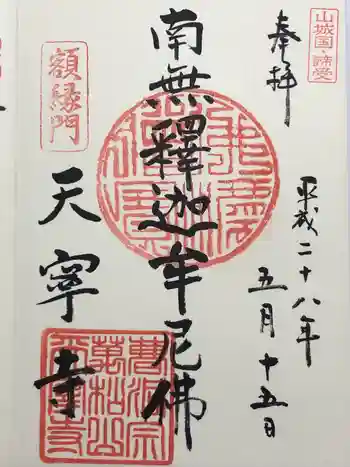 山城国・諦受
奉拝
平成二十八年
五月十五日
南無釋迦牟尼佛
額縁門
天寧寺
曹洞宗
萬松山
天寧寺